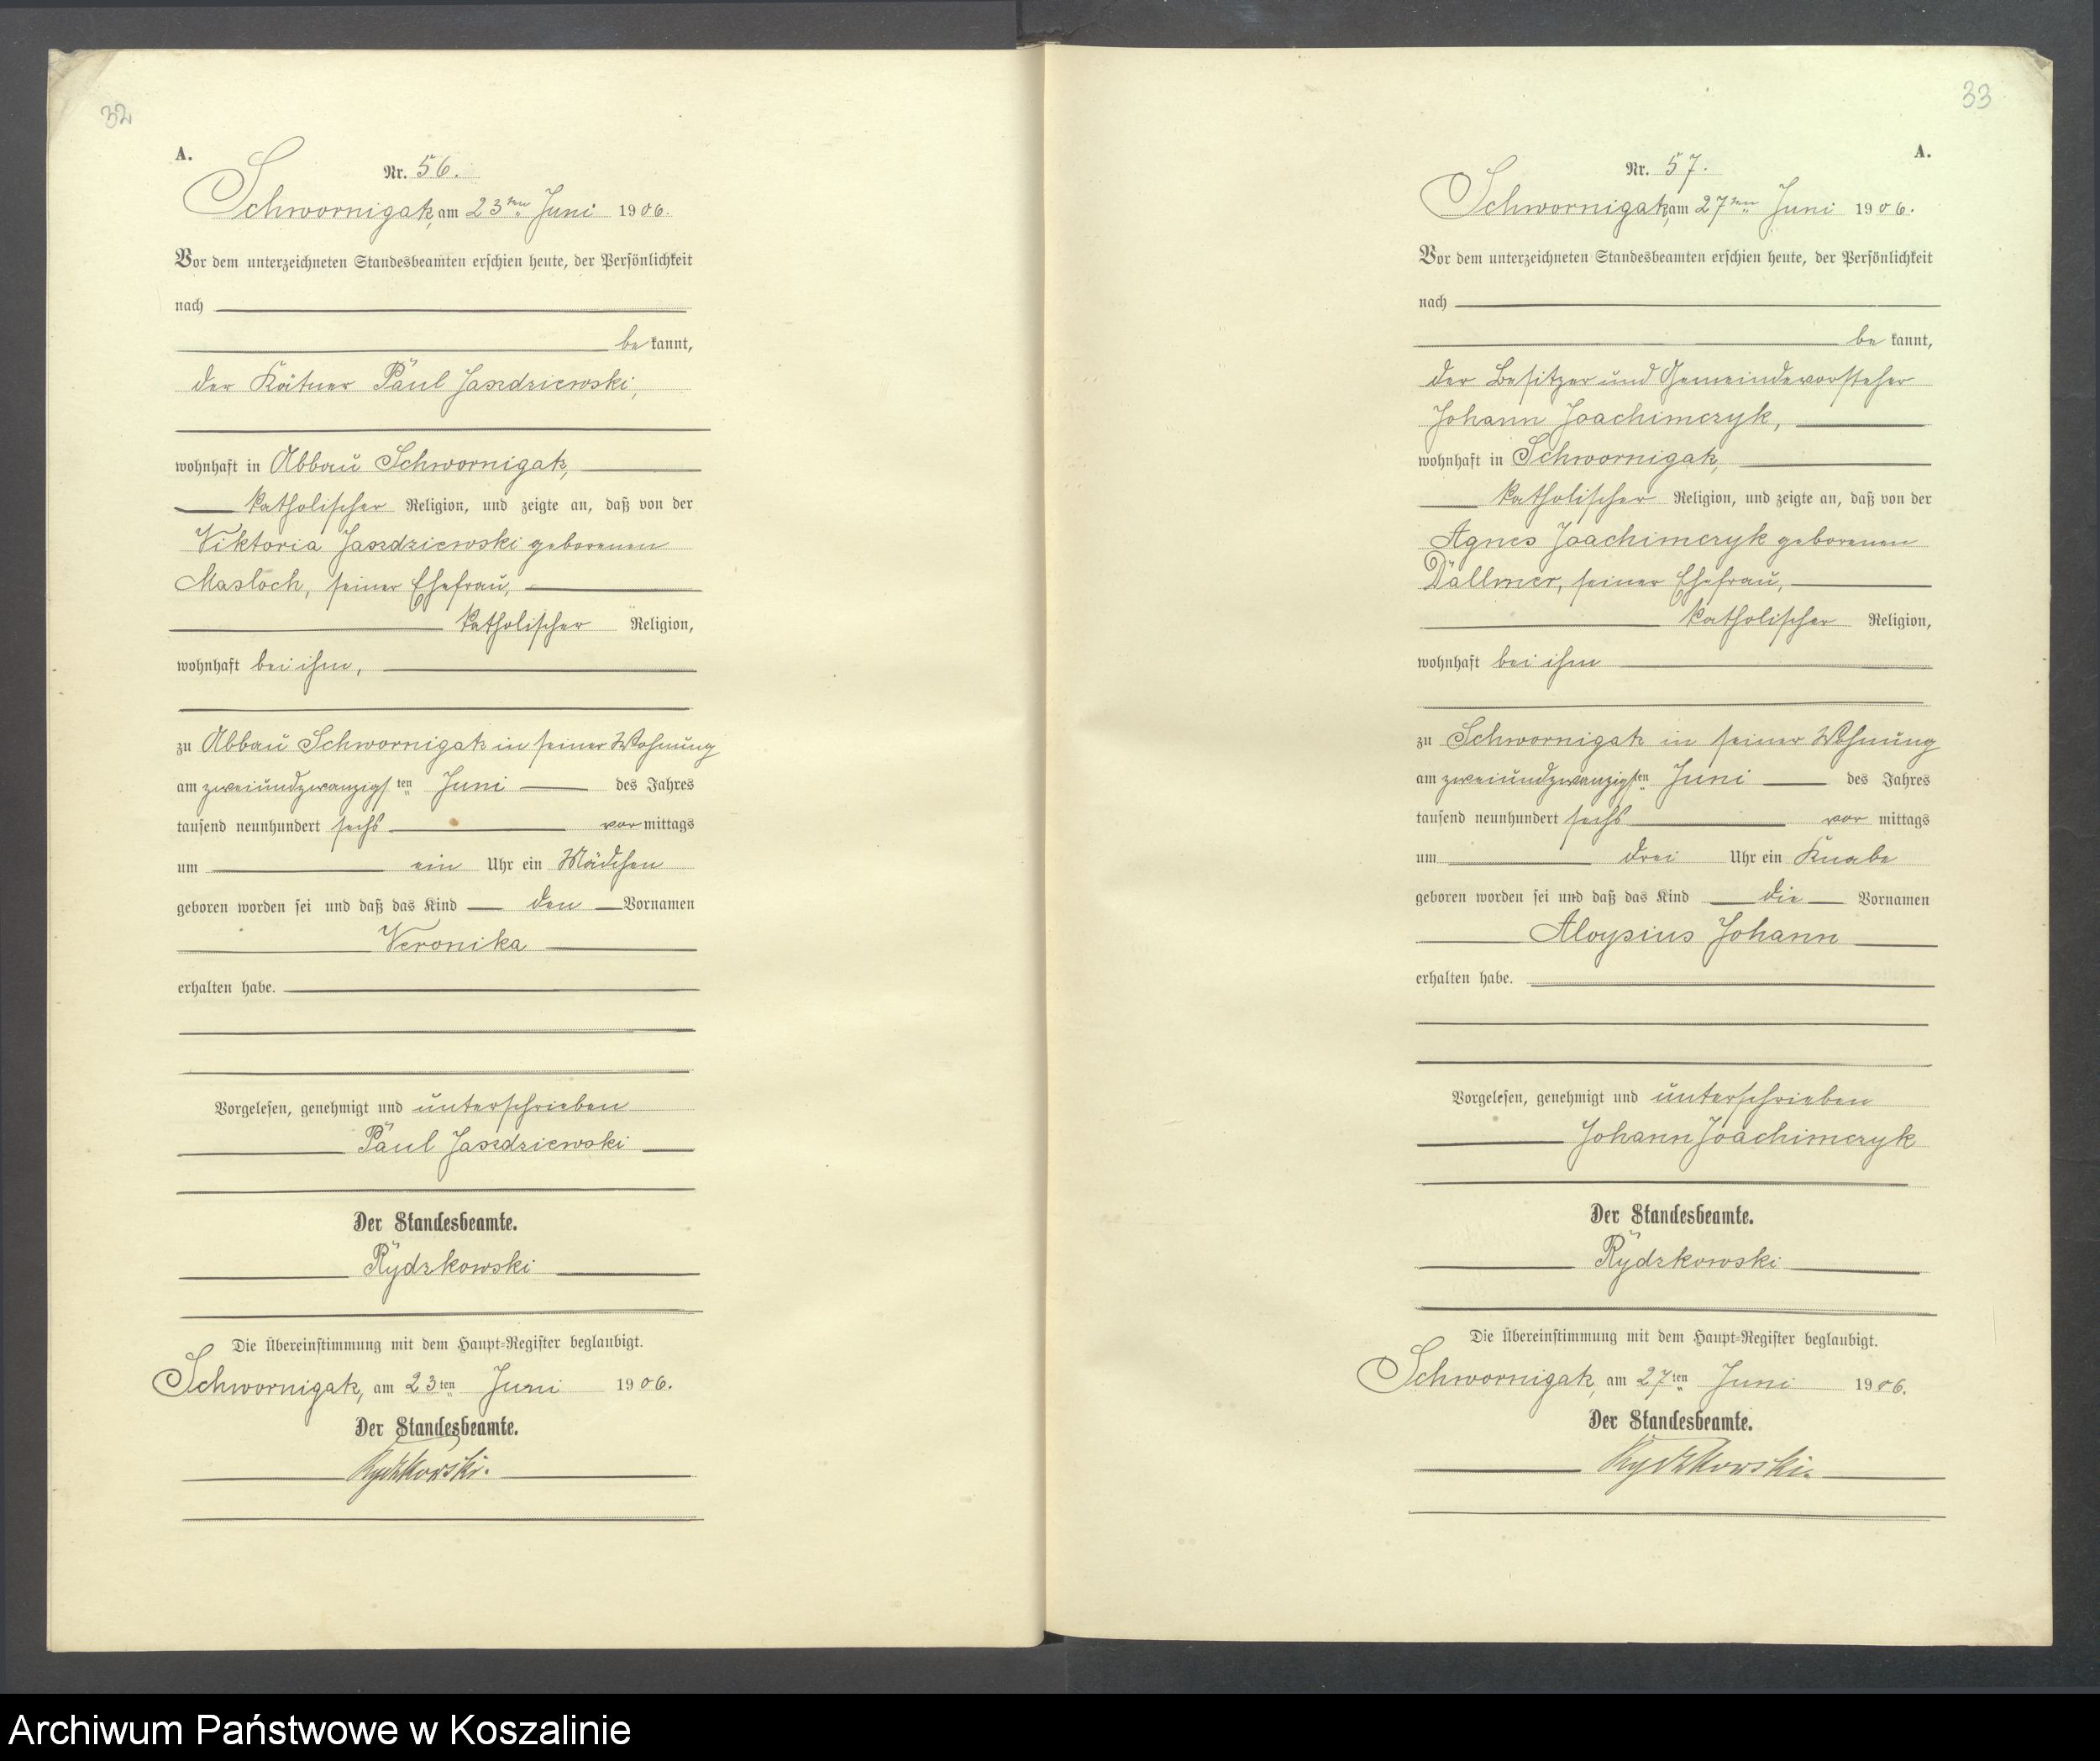 32
A.
Nr. 56.
Schwornigatz, am 23ten Juni 1906.
Vor dem unterzeichneten Standesbeamten erschien heute, der Persönlichkeit
nach
bekannt,
der Kätner Paul Jaszdziewski,
wohnhaft in Abbau Schwornigatz,
katholischer Religion, und zeigte an, daß von der
Viktoria Jaszdziewski geborenen
Masloch, seiner Ehefrau,
katholischer Religion,
wohnhaft bei ihm,
zu Abbau Schwornigatz in seiner Wohnung
am zweiundzwanzigsten Juni des Jahres
tausend neunhundert sechs vormittags
um ein Uhr ein Mädchen
geboren worden sei und daß das Kind den Vornamen
Veronika
erhalten habe.
Vorgelesen, genehmigt und unterschrieben
Paul Jaszdziewski
Der Standesbeamte.
Rydzkowski
Die Übereinstimmung mit dem Haupt-Register beglaubigt.
Schwornigatz, am 23ten Juni 1906.
Der Standesbeamte.
Rydzkowski.
33
A.
Nr. 57.
Schwornigatz, am 27ten Juni 1906.
Vor dem unterzeichneten Standesbeamten erschien heute, der Persönlichkeit
nach
bekannt,
der Besitzer und Gemeindevorsteher
Johann Joachimczyk,
wohnhaft in Schwornigatz,
katholischer Religion, und zeigte an, daß von der
Agnes Joachimczyk geborenen
Dallmer, seiner Ehefrau,
katholischer Religion,
wohnhaft bei ihm
zu Schwornigatz in seiner Wohnung
am zweiundzwanzigsten Juni des Jahres
tausend neunhundert sechs vor mittags
um drei Uhr ein Knabe
geboren worden sei und daß das Kind die Vornamen
Aloysius Johann
erhalten habe.
Vorgelesen, genehmigt und unterschrieben
Johann Joachimczyk
Der Standesbeamte.
Rydzkowski
Die Übereinstimmung mit dem Haupt-Register beglaubigt.
Schwornigatz, am 27ten Juni 1906.
Der Standesbeamte.
Rydzkowski.
Archiwum Państwowe w Koszalinie